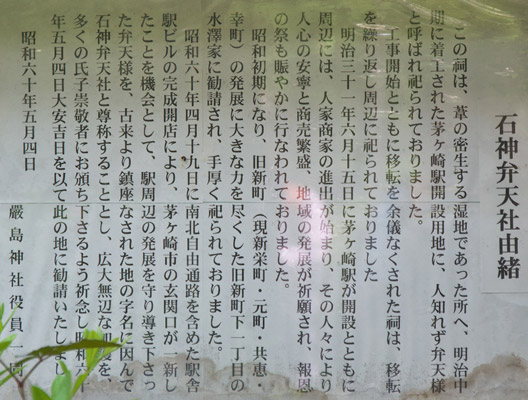 石神弁天社由緒
この祠は、葦の密生する湿地であった所へ、明治中
期に着工された茅ヶ崎駅開設用地に、人知れず弁天様
と呼ばれ祀られておりました。
工事開始とともに移転を余儀なくされた祠は、移転
を繰り返し周辺に祀られておりました
明治三十一年六月十五日に茅ヶ崎駅が開設とともに
周辺には、人家商家の進出が始まり、その人々により
人心の安寧と商売繁盛、地域の発展が祈願され、報恩
の祭も賑やかに行なわれておりました。
昭和初期になり、旧新町（現新栄町・元町・共恵・
幸町）の発展に大きな力を尽くした旧新町下一丁目の
水澤家に勧請され、手厚く祀られておりました。
昭和六十年四月十九日に南北自由通路を含めた駅舎
駅ビルの完成開店により、茅ヶ崎市の玄関口が一新し
たことを機会として、駅周辺の発展を守り導き下さっ
た弁天様を、古来より鎮座なされた地の字名に因んで
石神弁天社と尊称することとし、広大無辺な を、
多くの氏子崇敬者にお頒ち下さるよう祈念し昭和六十
年五月四日大安吉日を以て此の地に勧請いたしまし
昭和六十年五月四日
厳島神社役員一同